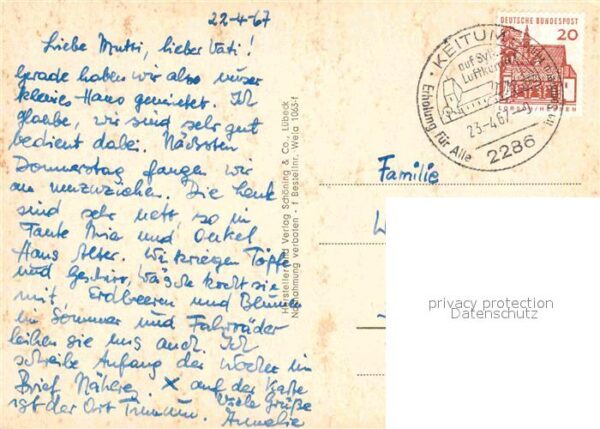 22-4-67
Liebe Mutti, lieber Vati!
Gerade haben wir also unser
kleines Haus gemietet. Ich
glaube, wir sind sehr gut
bedient dabei. Nächsten
Donnerstag fangen wir
an umzuziehen. Die Leute
sind sehr nett so in
Tante Mia und Onkel
Hans Alter. Wir kriegen Töpfe
und Geschirr, Wäsche kocht sie
mit, Erdbeeren und Blumen
im Sommer und Fahrräder
leihen sie uns auch. Ich
schreibe Anfang der Woche im
Brief Näheres. x auf der Karte
ist der Ort Tinnum. Viele Grüße
Annelie
Hersteller und Verlag Schöning & Co., Lübeck
Nachahmung verboten - f Bestellnr. Wela 1063-f
DEUTSCHE BUNDESPOST
20
LORSCH/HESSEN
KEITUM
auf Sylt
Luftkurort
23.-4.67
Erholung für Alle
2286
Familie
privacy protection
Datenschutz